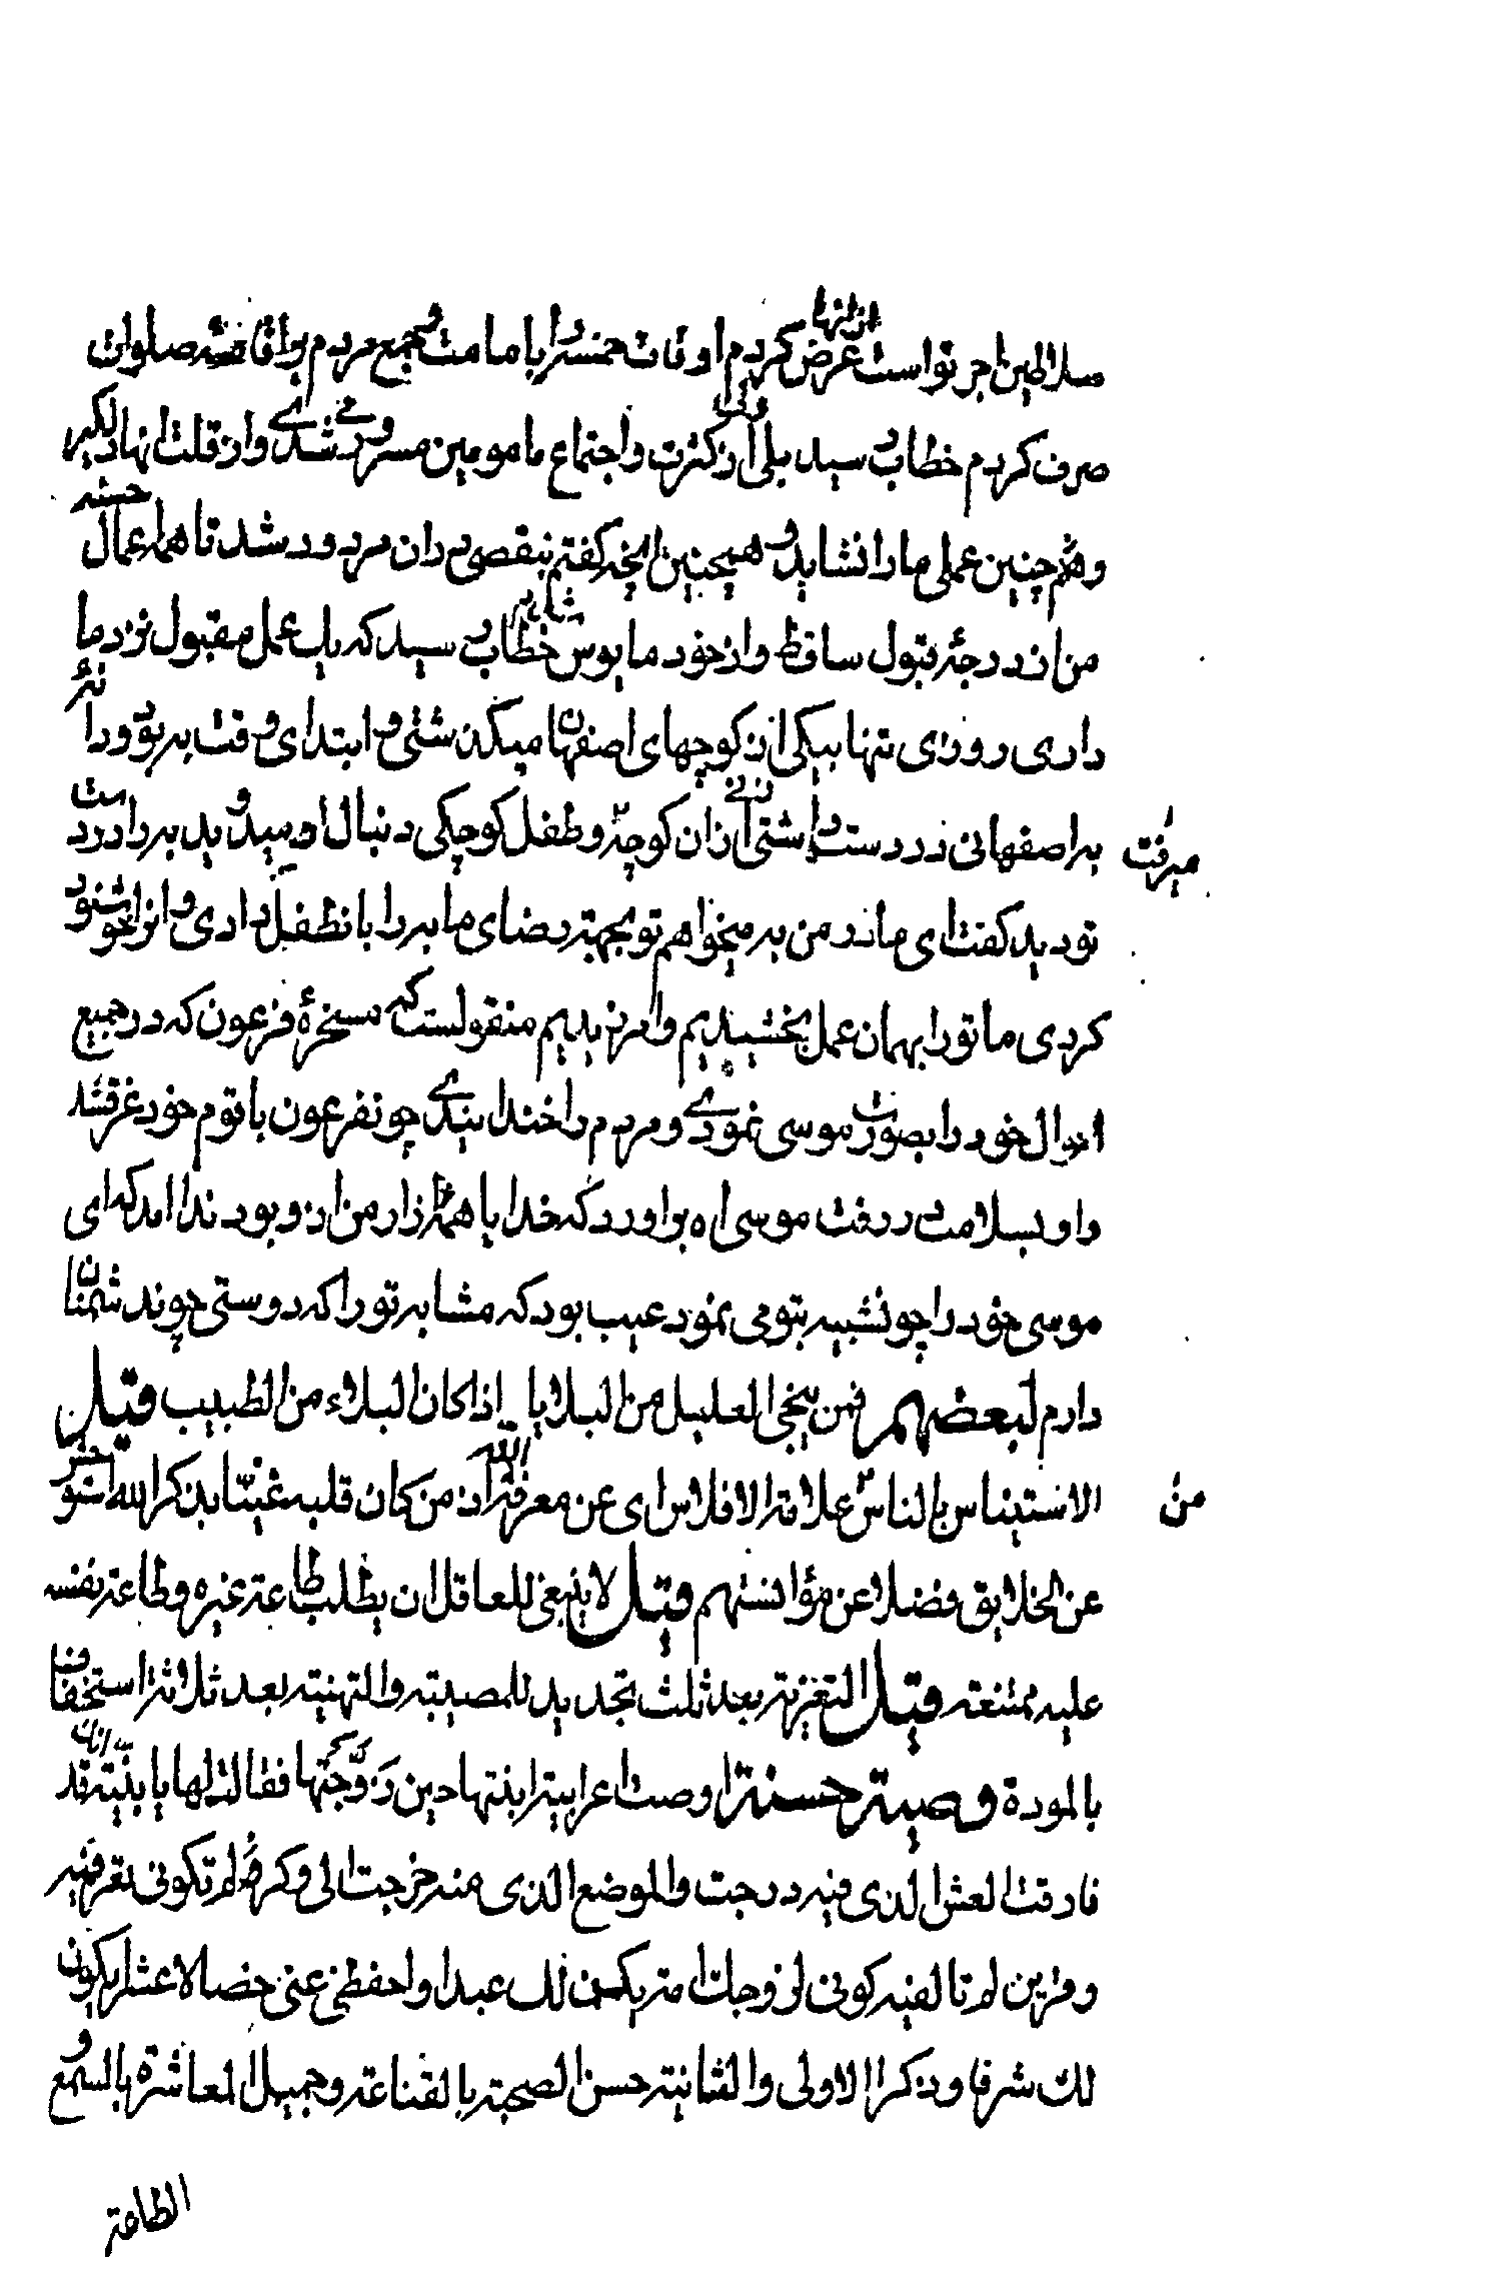 سلاطین اجر تو است عرض کردم اوقات خمسه را بامامت و جمع مردم برای اقامه صلوات
از انها
صرف کردم خطاب رسید بلی از کثرت و اجتماع مامومین مسرور می شدی و از قلت انها دلگیر
و همچنین عملی ما را نشاید و همچنین انچه گفتم بنقصی در ان مردود شد تا همه اعمال حسنه
من از درجه قبول ساقط و از خود مایوس شدم خطاب رسید که یک عمل مقبول نزد ما
داری روزی تنها بیکی از کوچهای اصفهان میگذشتی و ابتدای وقت به بود و دانه
به اصفهانی در دست داشتی زنی از ان کوچه و طفل کوچکی دنبال او میدوید به را در دست
میرفت
تو دید گفت ای مادر من به میخواهم تو بجهة رضای ما به را بانطفل دادی و انرا خوشنود
کردی ما تو را بهمان عمل بخشیدیم و امرزیدیم منقولست که مسخرهٔ فرعون که در جمیع
احوال خود را بصورت موسی نمودی و مردم را خندانیدی چون فرعون با قوم خود غرق شد
و او بسلامت در رفت موسی اه براورد که خدایا همه ازار من از و بود ندا امد که ای
موسی خود را چون شبیه بتو می نمود عیب بود که مشابه تو را که دوستی چون دشمنان
دارم لبعضهم فمن ینجی العلیل من البلایا اذا کان البلاء من الطبیب قیل
الاستیناس بالناس علامة الافلاس ای عن معرفة الله اذ من کان قلبه غنیّا بذکر الله استوحش
من
عن الخلایق فضلا عن مؤانستهم قیل لا ینبغی للعاقل ان یطلب طاعة غیره و طاعة نفسه
علیه ممتنعة قیل التعزیة بعد ثلث تجدید للمصیبة والتهنیة بعد ثلاثة استخفاف
بالمودة وصیة حسنة اوصت اعرابیة ابنتها حین زَوَّجَتْها فقالت لها یا بنیّة انک قد
فارقت العش الذی فیه درجت والموضع الذی منه خرجت الی وکر لم تکونی تعرفیه
وقرین لم تالفیه کونی لزوجک امة یکن لک عبدا واحفظی عنی خصالا عشرا یکون
لک شرفا وذکرا الاولی والثانیة حسن الصحبة بالقناعة وجمیل المعاشرة بالسمع و
الطاعة